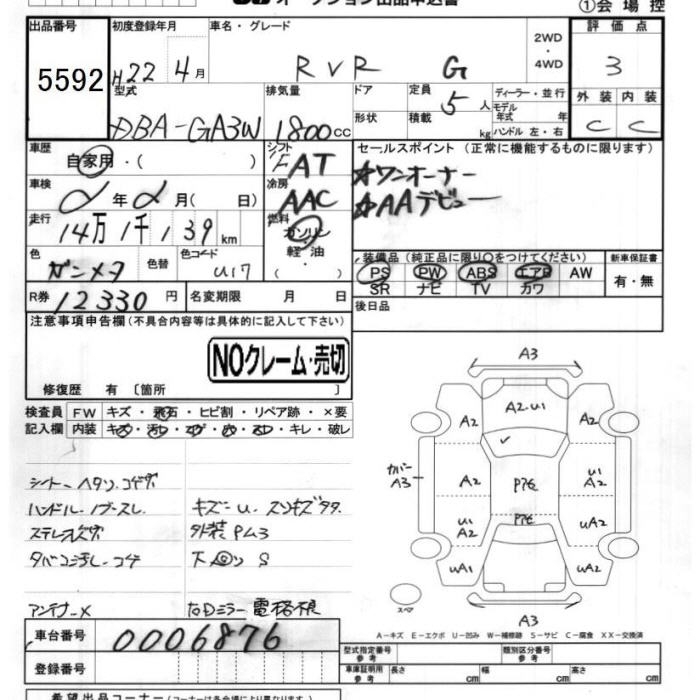 オークション出品申込書
①会場控
出品番号
5592
初度登録年月
H22 4月
車名・グレード
RVR G
2WD
・
4WD
評価点
3
型式
DBA-GA3W
排気量
1800cc
ドア
形状
定員
5人
積載
kg
ディーラー・並行
モデル
年式 年
ハンドル 左・右
外装 内装
C C
車歴
自家用・( )
シフト
FAT
セールスポイント (正常に機能するものに限ります)
☆ワンオーナー
☆AAデビュー
車検
年 月( 日)
冷房
AAC
走行
14万1千139km
燃料
ガソリン
軽・油
色
ガンメタ
色替
色コード
U17
装備品(純正品に限り〇をつけてください)
PS PW ABS エアB AW
SR ナビ TV カワ
新車保証書
有・無
R券
12330円
名変期限 月 日
後日品
注意事項申告欄(不具合内容等は具体的に記入して下さい)
NOクレーム・売切
修復歴 有〔箇所 〕
検査員
記入欄
FW キズ・飛石・ヒビ割・リペア跡・×要
内装 キズ・汚レ・コゲ・穴・スレ・キレ・破レ
シート ヘタリ、コゲ穴
ハンドル・ノブスレ
キズー U. スリキズ多々
外装PM3
下回り S
タバコ汚レ・コゲ
アンテナ×
右Dミラー電格不良
A3
A2.U1
A2
A2
カバー
A3
A2
U1
A2
Pアセ
U1
A2
Pアセ
UA2
UA1
UA2
スペア
A3
A-キズ E-エクボ U-凹み W-補修跡 S-サビ C-腐食 XX-交換済
車台番号
0006876
登録番号
型式指定番号
参考
類別区分番号
参考
車庫証明用
参考
長さ cm 幅 cm 高さ cm
希望出品コーナー(コーナーは各会場により異なります)